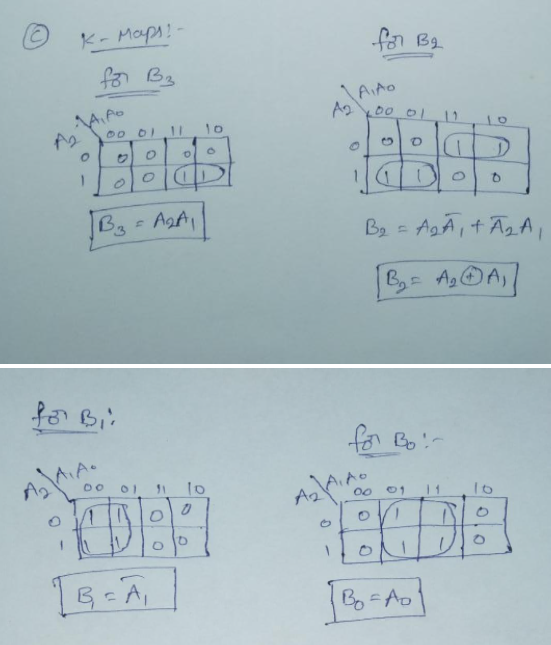 (C) K-Maps:-
for B3
A1A0
A2 00 01 11 10
0 0 0 0 0
1 0 0 1 1
B3 = A2A1
for B2
A1A0
A2 00 01 11 10
0 0 0 1 1
1 1 1 0 0
B2 = A2A̅1 + A̅2A1
B2 = A2⊕A1
for B1:
A1A0
A2 00 01 11 10
0 1 1 0 0
1 1 1 0 0
B1 = A̅1
for B0:-
A1A0
A2 00 01 11 10
0 0 1 1 0
1 0 1 1 0
B0 = A0